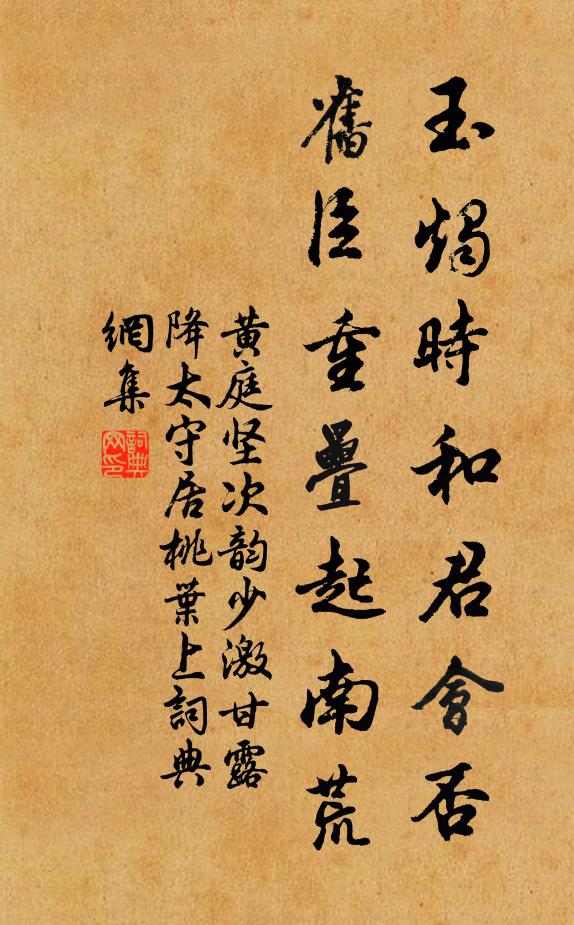 玉燭時和君會否
舊臣重疊起南荒
黃庭坚次韵少激甘露
降太守居桃葉上詞典
網集
詞典
网印